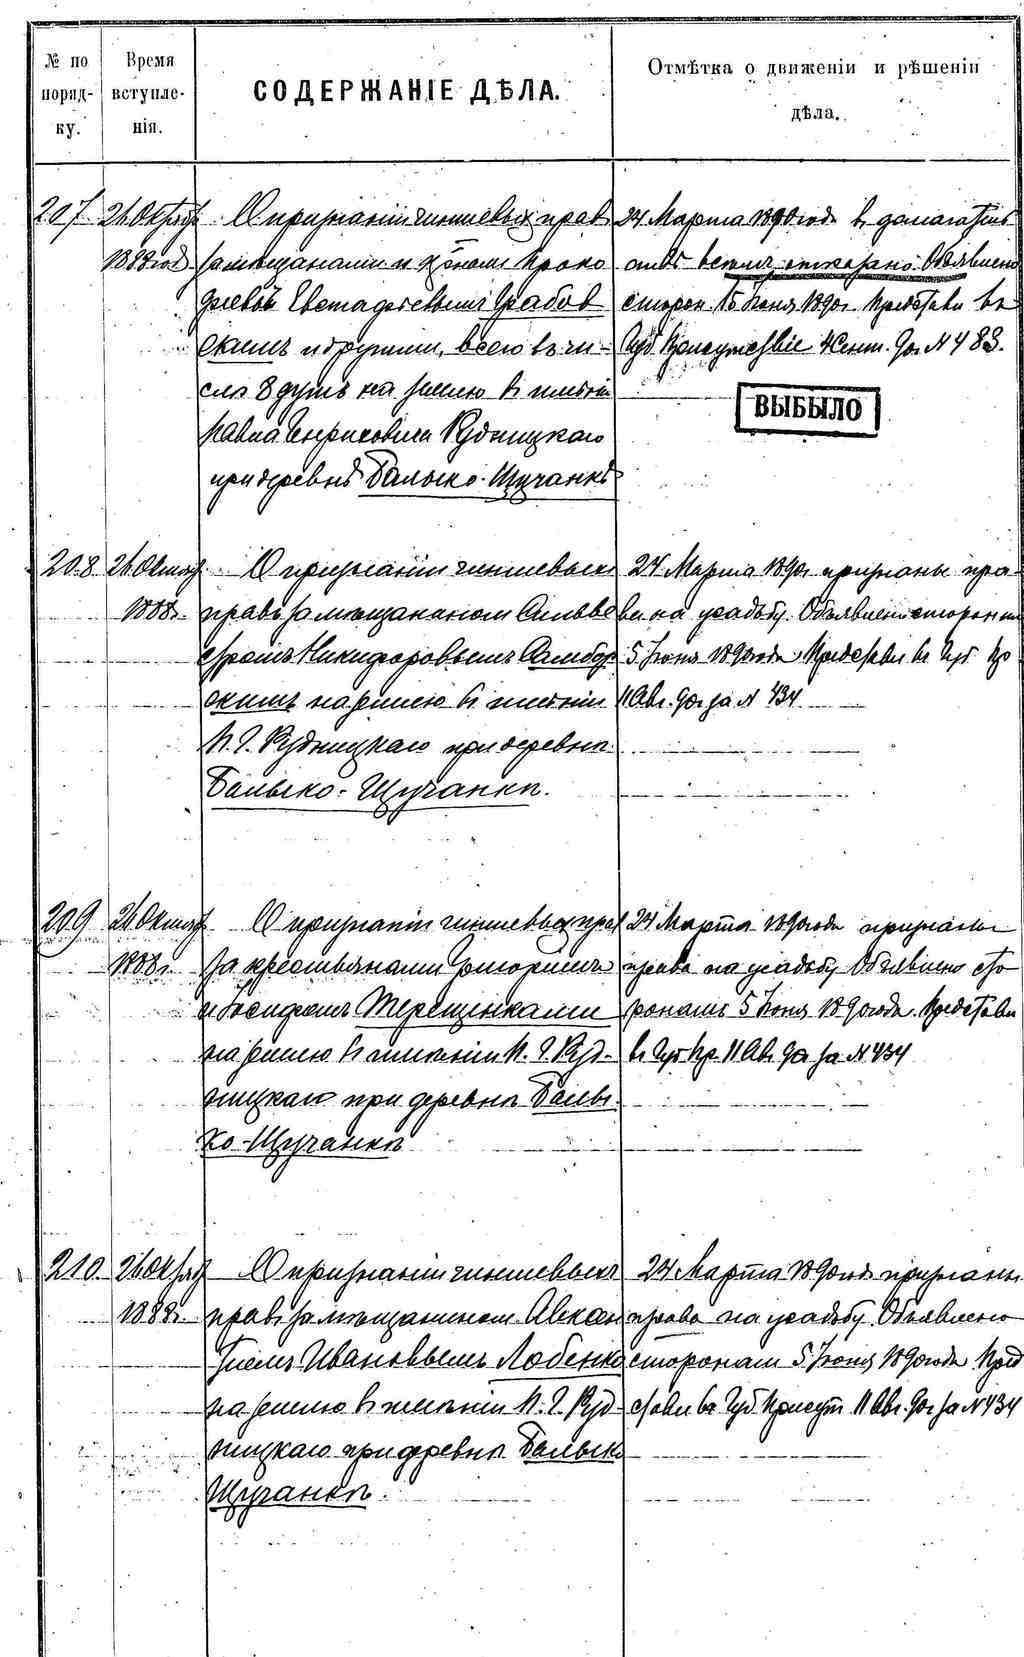 № по поряд- ку.
Время вступле- нія.
СОДЕРЖАНІЕ ДѢЛА.
Отмѣтка о движеніи и рѣшеніи дѣла.
207
26 Октяб
1888 год
О признаніи чиншевыхъ правъ
за мѣщанами Проко
Евстафіевымъ Грабов
скимъ и другими, всего въ чи-
слѣ 8 душъ на землю въ имѣніи
Павла Генриховича Рудницкаго
при деревнѣ Балыко-Щучанкѣ
24 Марта 1890 года в домагатель
всѣмъ отказано. Объявлено
сторон. 15 Іюня 1890г. Представл въ
Губ Присутствіе 4 Сент. 90г N 483.
ВЫБЫЛО
208
26 Октяб
1888г.
О признаніи чиншевыхъ
правъ за мѣщаниномъ Сильве
стромъ Никифоровымъ Самбор
скимъ на землю въ имѣніи
П. Г. Рудницкаго при деревнѣ
Балыко-Щучанкѣ.
24 Марта 1890г признаны пра-
ва на усадьбу. Объявлено сторонам
5 Іюня 1890 года Представл въ Губ Пр
11 Авг. 90г за N 434
209
26 Октяб
1888г.
О признаніи чиншевыхъ прав
за крестьянами Григоріемъ
и Іосифомъ Терещенками
на землю въ имѣніи П. Г. Руд-
ницкаго при деревнѣ Балы-
ко-Щучанкѣ
24 Марта 1890 года признаны
права на усадьбу Объявлено сто
ронамъ 5 Іюня 1890 года. Представл
въ Губ Пр. 11 Авг 90г за N 434
210.
26 Октяб
1888г.
О признаніи чиншевыхъ
правъ за мѣщаниномъ Авксен
тіемъ Ивановымъ Лобенко
на землю въ имѣніи П. Г. Руд-
ницкаго при деревнѣ Балыко
Щучанкѣ.
24 Марта 1890 год признаны
права на усадьбу Объявлено
сторонам 5 Іюня 1890 года Пред
ставл въ Губ Присут 11 Авг. 90г за N 434